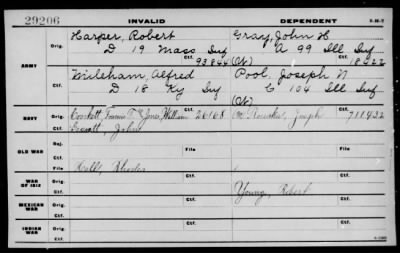 29206 INVALID DEPENDENT
Harper, Robert Gray, John H
Orig. D 19 Mass Inf A 99 Ill Inf
Ctf. 93844 (N) 18522
ARMY
Mileham, Alfred Pool, Joseph N
Orig. D 18 Ky Inf C 104 Ill Inf
Ctf. (N)
NAVY Orig. Jones, William 26168 Joseph 711432
Ctf. John
OLD WAR
File File
Hall, Rhodes
WAR OF 1812 Orig. Young, Robert
Ctf. Ctf.
MEXICAN WAR Orig.
Ctf. Ctf.
INDIAN WAR Orig.
Ctf. Ctf.